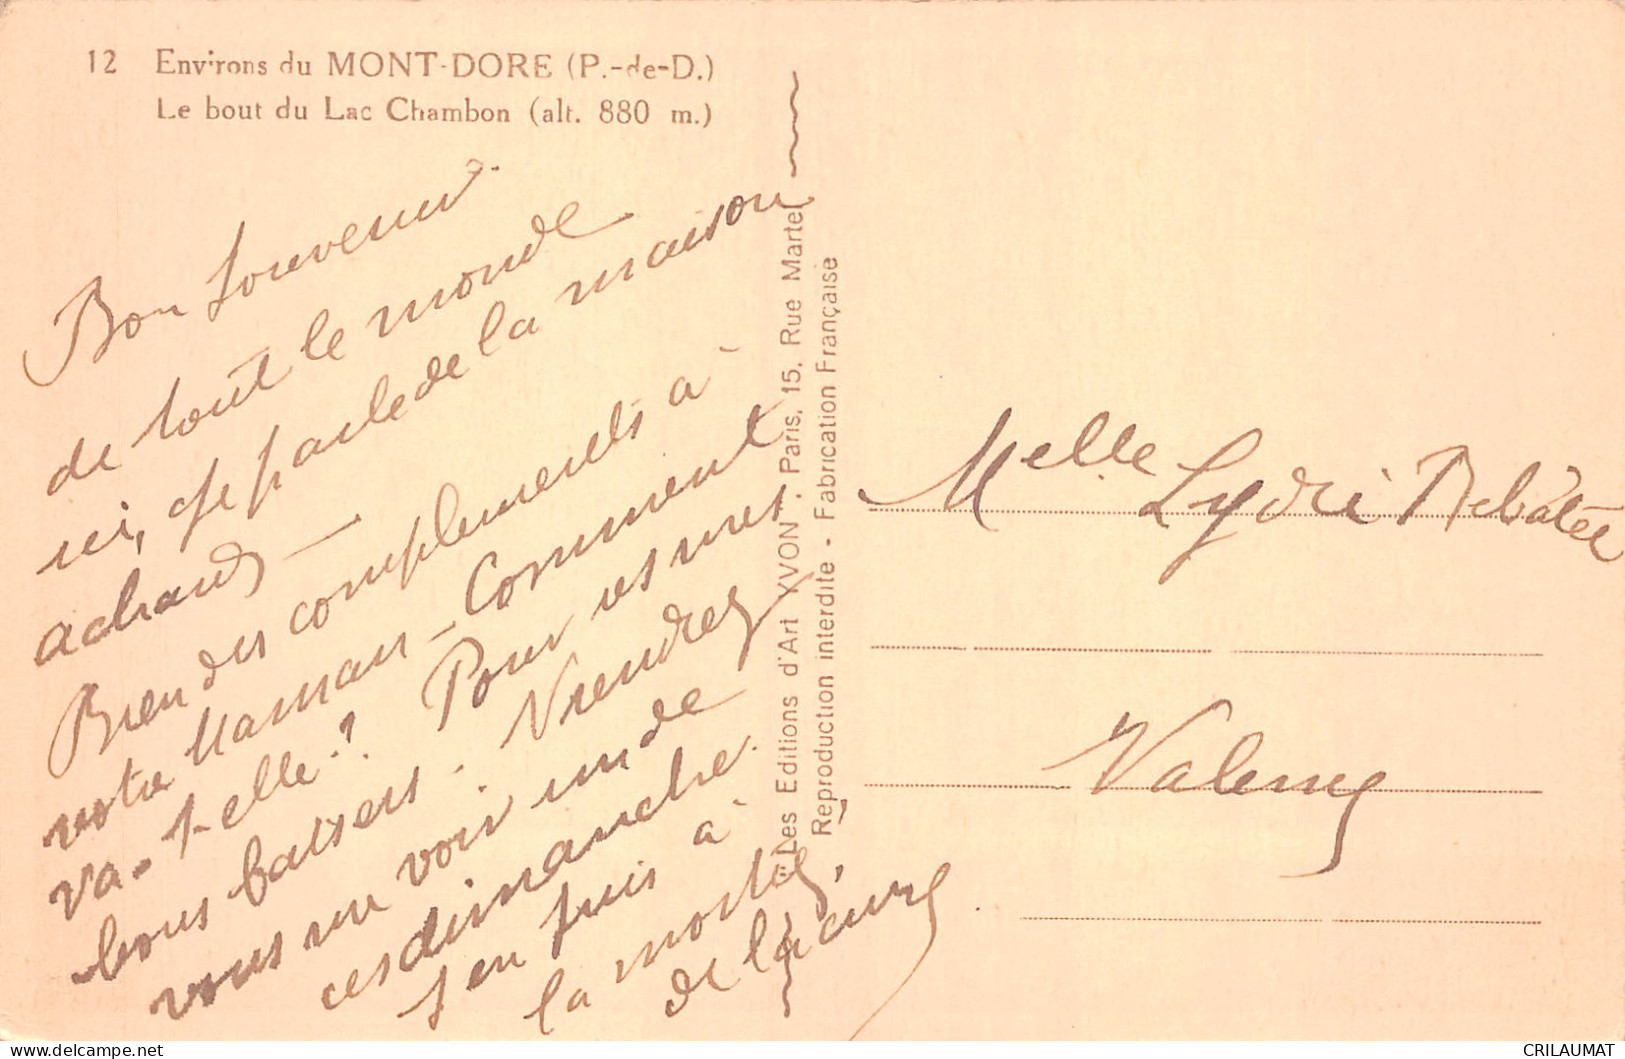 12 Environs du MONT-DORE (P.-de-D.)
Le bout du Lac Chambon (alt. 880 m.)
Bon souvenir
de tout le monde
ici, je parle de la maison
achard
Bien des complements à
votre Maman - Comment
va-t-elle? Pour vs mes
bons baisers. Viendrez
vous me voir un de
ces dimanche
j'en suis à
la moitié
de la cure
"Les Editions d'Art YVON", Paris, 15, Rue Martel
Reproduction interdite - Fabrication Française
Melle Lydie Rebatée
Valency
CRILAUMAT